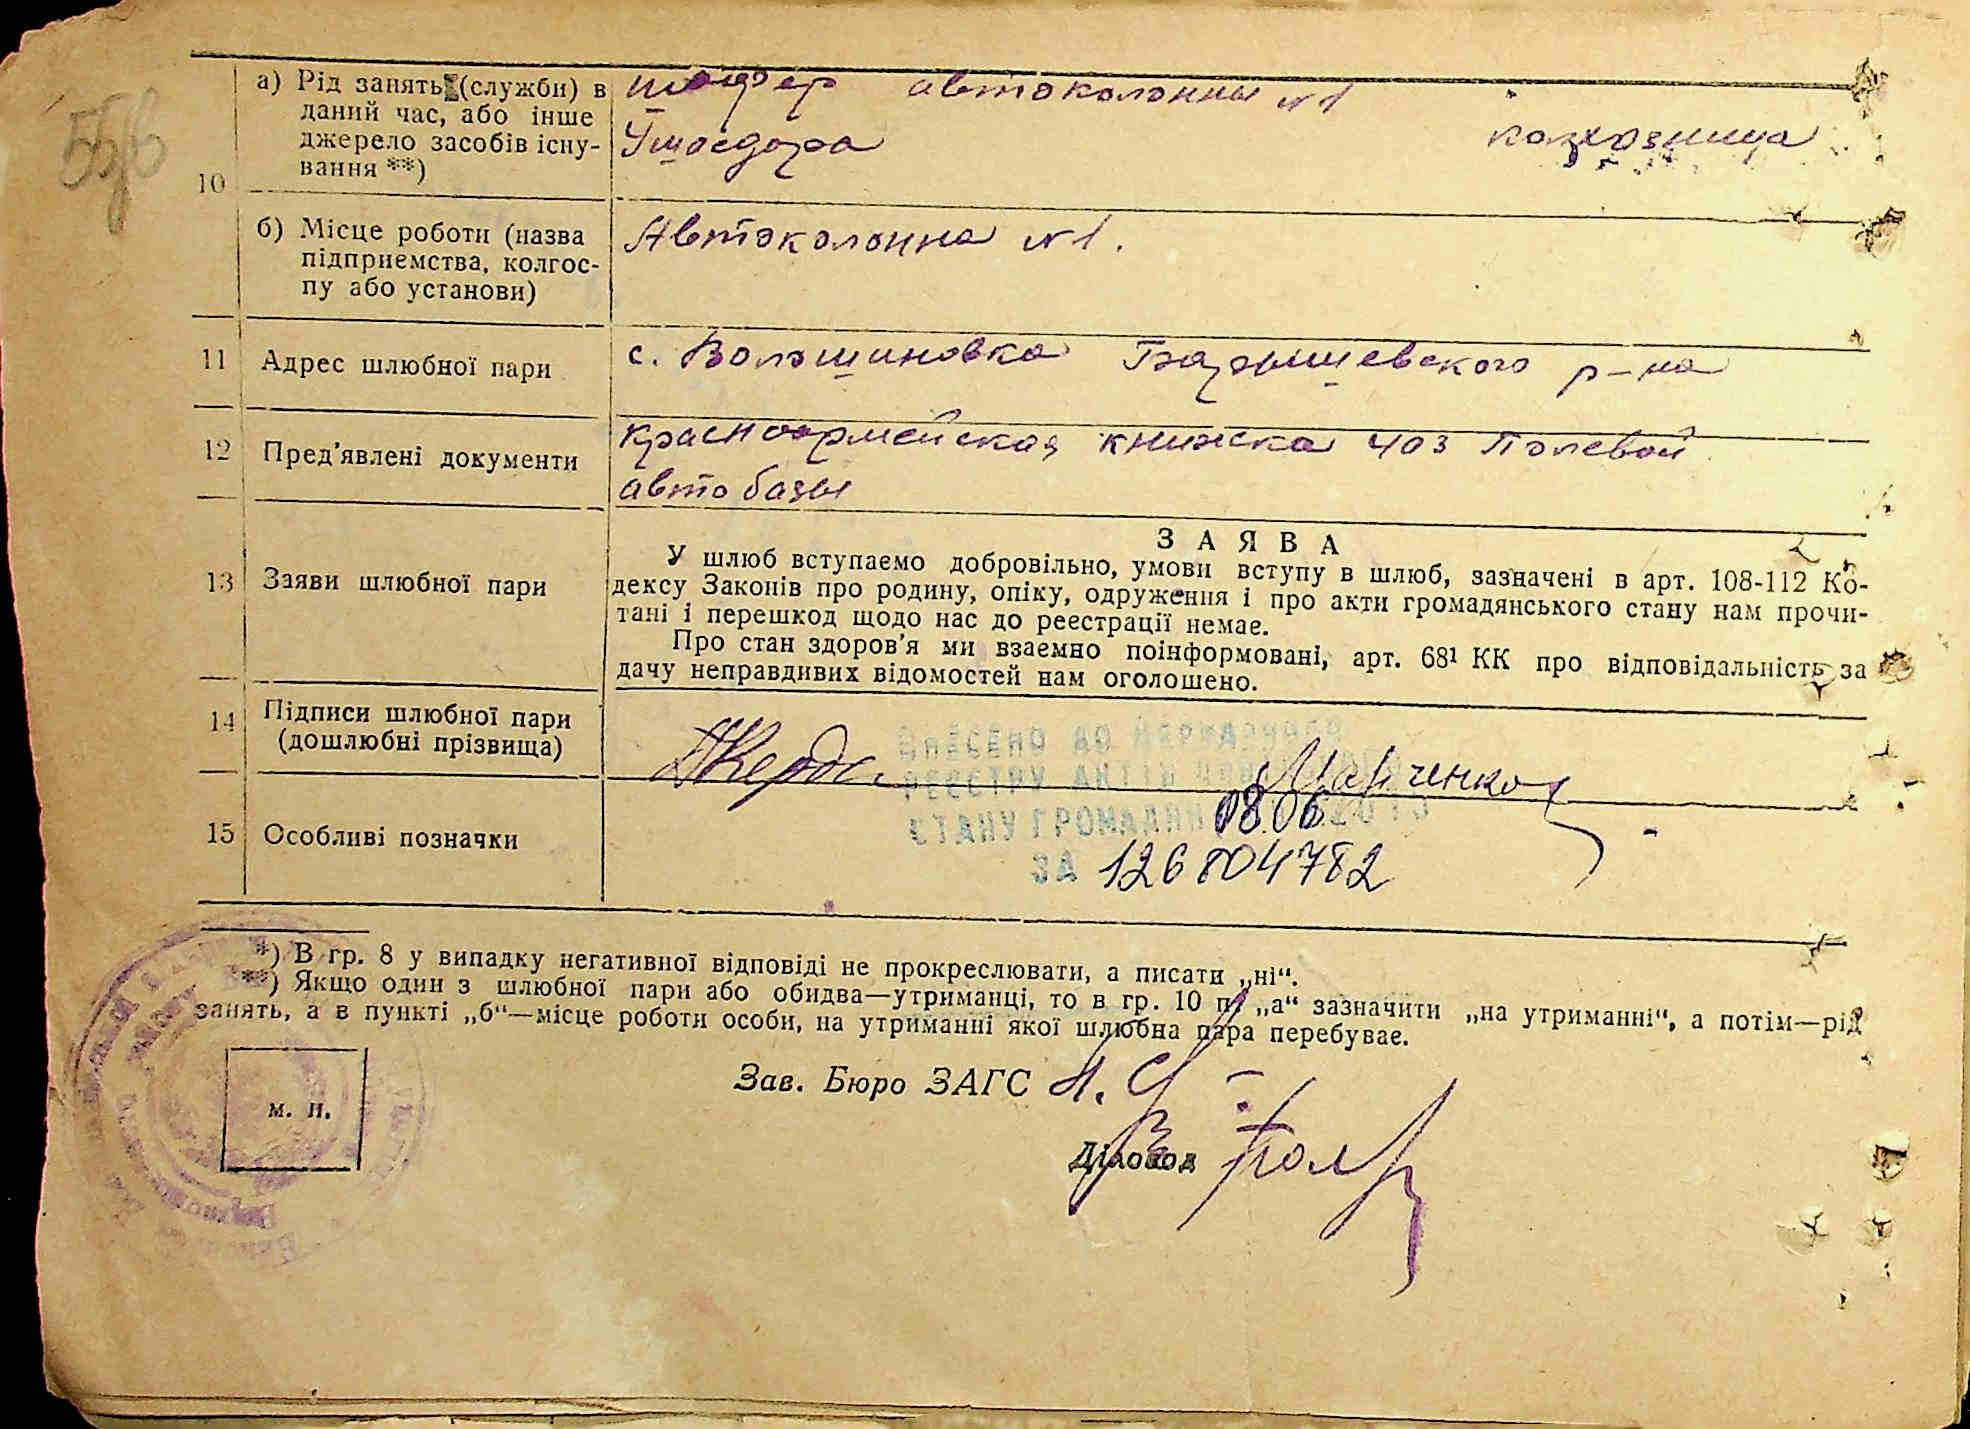 10
а) Рід занять (служби) в
даний час, або інше
джерело засобів існу-
вання **)
шофер автоколонны №1
Ушосдора колхозница
б) Місце роботи (назва
підприємства, колгос-
пу або установи)
Автоколонна №1.
11 Адрес шлюбної пари с. Волошиновка Барышевского р-на
12 Пред'явлені документи
красноармейская книжка 403 Полевой
автобазы
13 Заяви шлюбної пари
ЗАЯВА
У шлюб вступаемо добровільно, умови вступу в шлюб, зазначені в арт. 108-112 Ко-
дексу Законів про родину, опіку, одруження і про акти громадянського стану нам прочи-
тані і перешкод щодо нас до реестрації немае.
Про стан здоров'я ми взаемно поінформовані, арт. 68¹ КК про відповідальність за
дачу неправдивих відомостей нам оголошено.
14 Підписи шлюбної пари
(дошлюбні прізвища)
ВНЕСЕНО ДО ДЕРЖАВНОГО
РЕЄСТРУ АКТІВ
СТАНУ ГРОМАДЯН
08.06
ЗА 126804782
15 Особливі позначки
*) В гр. 8 у випадку негативної відповіді не прокреслювати, а писати „ні“.
**) Якщо один з шлюбної пари або обидва—утриманці, то в гр. 10 п. „а“ зазначити „на утриманні“, а потім—рід
занять, а в пункті „б“—місце роботи особи, на утриманні якої шлюбна пара перебувае.
Зав. Бюро ЗАГС
Діловод
м. п.